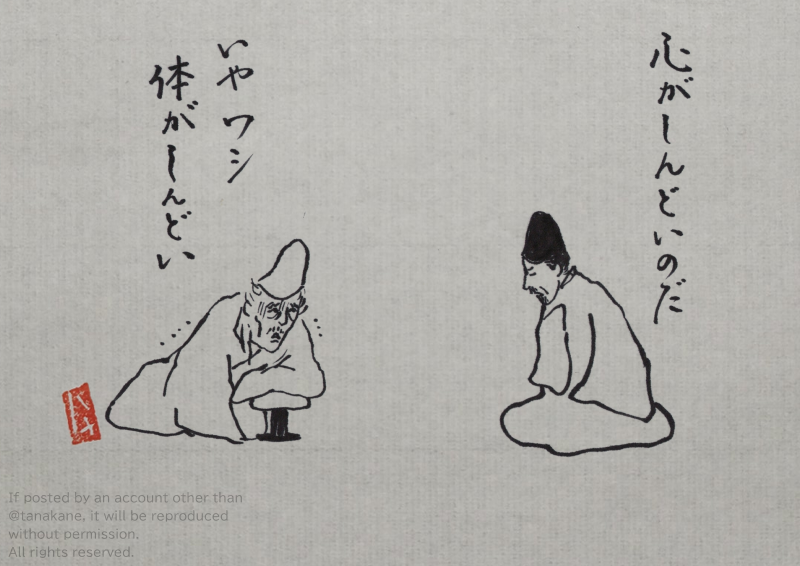 心がしんどいのだ
いやワシ
体がしんどい
If posted by an account other than
@tanakane, it will be reproduced
without permission.
All rights reserved.